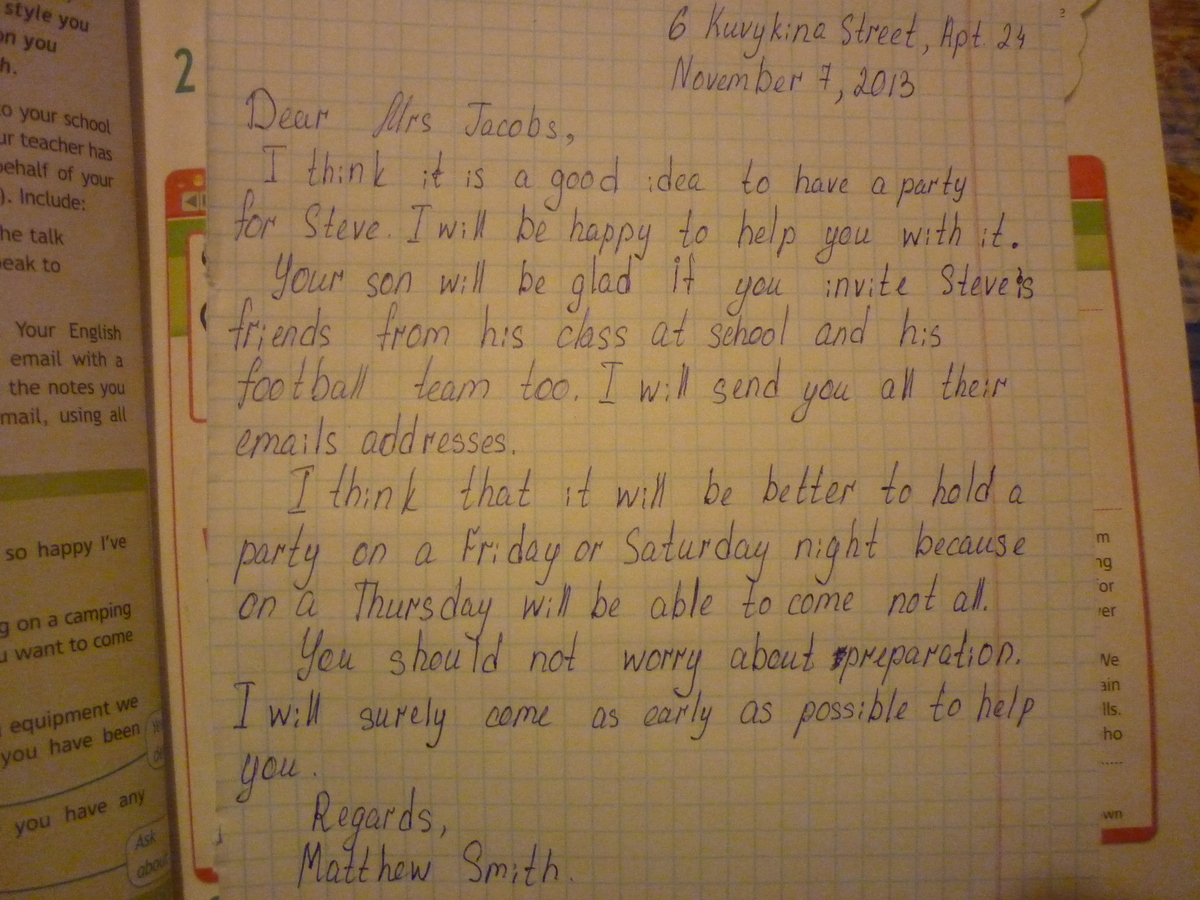 style you
on you
h.
o your school
ur teacher has
behalf of your
). Include:
he talk
eak to
Your English
email with a
the notes you
mail, using all
so happy I've
g on a camping
u want to come
equipment we
you have been
you have any
Ask
about
2
6 Kuvykina Street, Apt. 24
November 7, 2013
Dear Mrs Jacobs,
I think it is a good idea to have a party
for Steve. I will be happy to help you with it.
Your son will be glad if you invite Steve's
friends from his class at school and his
football team too. I will send you all their
emails addresses.
I think that it will be better to hold a
party on a Friday or Saturday night because
on a Thursday will be able to come not all.
You should not worry about preparation.
I will surely come as early as possible to help
you.
Regards,
Matthew Smith.
m
ng
or
ver
We
ain
lls.
ho
wn